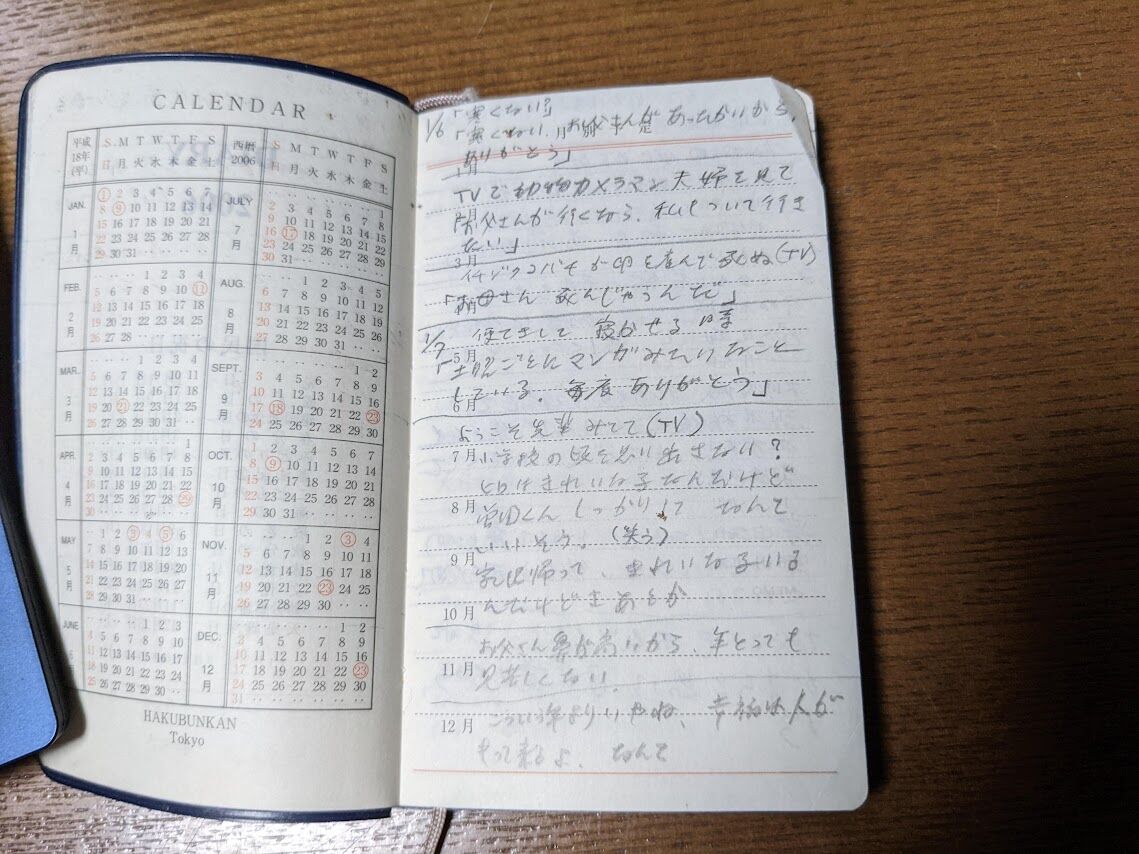 CALENDAR
平成18年(平) S M T W T F S 西暦2006 S M T W T F S
日 月 火 水 木 金 土 日 月 火 水 木 金 土
JAN. 1月
1 2 3 4 5 6 7
8 9 10 11 12 13 14
15 16 17 18 19 20 21
22 23 24 25 26 27 28
29 30 31
FEB. 2月
1 2 3 4
5 6 7 8 9 10 11
12 13 14 15 16 17 18
19 20 21 22 23 24 25
26 27 28
MAR. 3月
1 2 3 4
5 6 7 8 9 10 11
12 13 14 15 16 17 18
19 20 21 22 23 24 25
26 27 28 29 30 31
APR. 4月
1
2 3 4 5 6 7 8
9 10 11 12 13 14 15
16 17 18 19 20 21 22
23 24 25 26 27 28 29
30
MAY 5月
1 2 3 4 5 6
7 8 9 10 11 12 13
14 15 16 17 18 19 20
21 22 23 24 25 26 27
28 29 30 31
JUNE 6
1 2 3
4 5 6 7 8 9 10
11 12 13 14 15 16 17
18 19 20 21 22 23 24
25 26 27 28 29 30
JULY 7月
1
2 3 4 5 6 7 8
9 10 11 12 13 14 15
16 17 18 19 20 21 22
23 24 25 26 27 28 29
30 31
AUG. 8月
1 2 3 4 5
6 7 8 9 10 11 12
13 14 15 16 17 18 19
20 21 22 23 24 25 26
27 28 29 30 31
SEPT. 9月
1 2
3 4 5 6 7 8 9
10 11 12 13 14 15 16
17 18 19 20 21 22 23
24 25 26 27 28 29 30
OCT. 10月
1 2 3 4 5 6 7
8 9 10 11 12 13 14
15 16 17 18 19 20 21
22 23 24 25 26 27 28
29 30 31
NOV. 11月
1 2 3 4
5 6 7 8 9 10 11
12 13 14 15 16 17 18
19 20 21 22 23 24 25
26 27 28 29 30
DEC. 12月
1 2
3 4 5 6 7 8 9
10 11 12 13 14 15 16
17 18 19 20 21 22 23
24 25 26 27 28 29 30
31
HAKUBUNKAN
Tokyo
1/6 「寒くない?」
「寒くない、お父さんがあったかいから、
ありがとう」
TVで動物カメラマン夫婦を見て
「お父さんが行くなら、私もついて行き
たい」
3月
イチジクコバチが卵を産んで死ぬ(TV)
「お母さん 死んじゃうんだ」
1/7 寝かせる時
5月
「土日ごとにマンガみたいなこと
している。毎度ありがとう」
6月
ようこそ先輩 みてて(TV)
7月 小学校の頃を思い出さない?
とりはきれいな子なんだけど
8月 くん しっかりして なんて
いいそう。(笑う)
9月
家に帰って、きれいな子いる
んだけどまあるか
10月
お父さん鼻が高いから、年とっても
11月 見苦しくない
12月 こういう年よりいやね、幸福は人が
もって来るよ、なんて